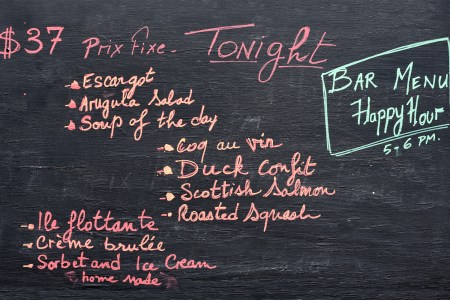 $37 Prix Fixe - Tonight
- Escargot
- Arugula Salad
- Soup of the day
- Coq au vin
- Duck Confit
- Scottish Salmon
- Roasted Squash
- Ile flottante
- Crème brulée
- Sorbet and Ice Cream
(home made)
Bar Menu
Happy Hour
5-6 PM.